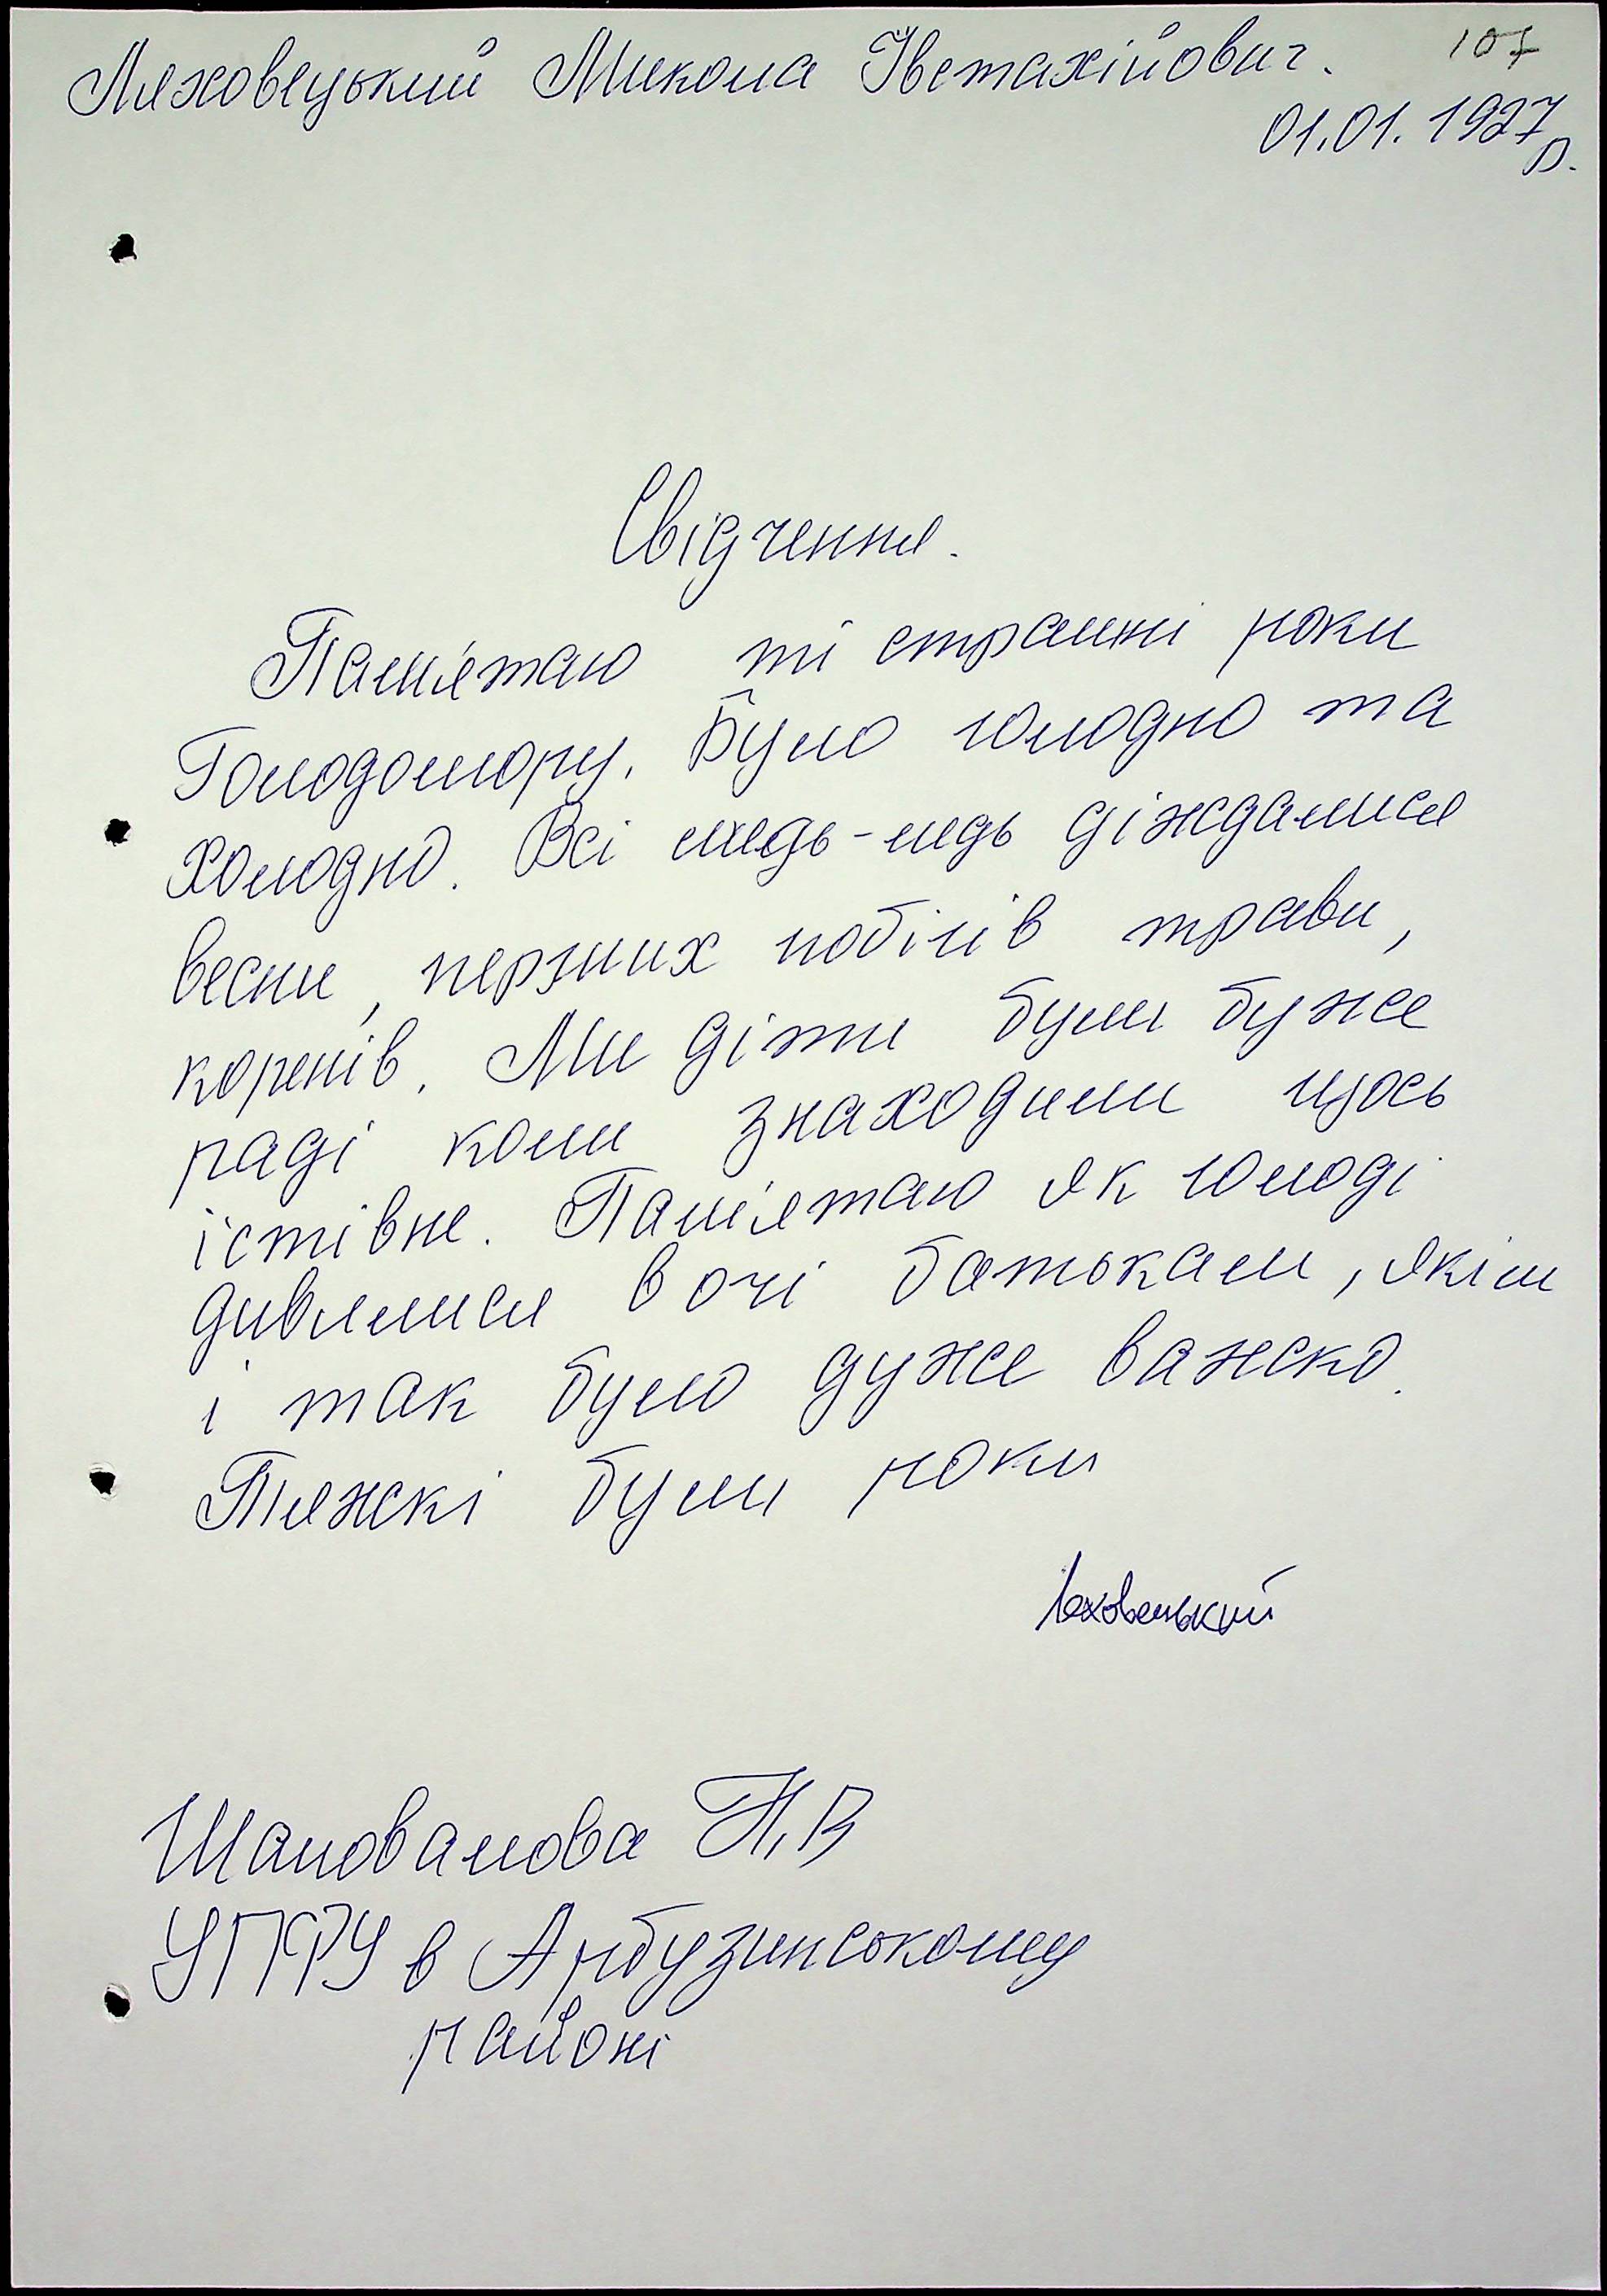 107
Ляховецький Микола Євстахійович.
01.01.1927р.
Свідчення.
Пам'ятаю ті страшні роки
Голодомору. Було голодно та
холодно. Всі ледь-ледь діждалися
весни, перших побігів трави,
коренів. Ми діти були дуже
раді коли знаходили щось
їстівне. Пам'ятаю як голоді
дивлилися в очі батькам, якім
і так було дуже важко.
Тяжкі були роки
Ляховецький
Шаповалова Н.В
УПФУ в Арбузинському
районі